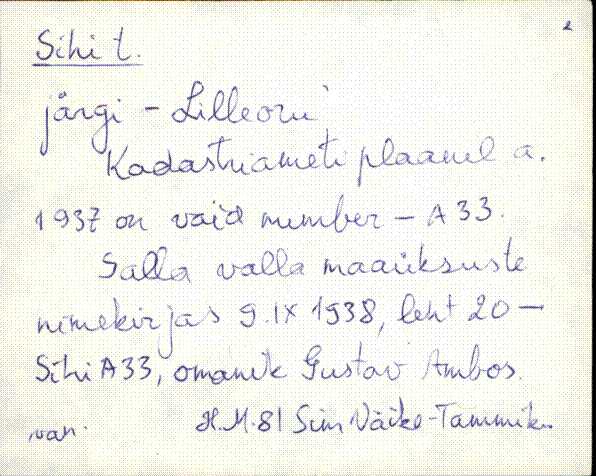 2
Sihi t.
järgi - Lilleoru
Kadastriameti plaanil a.
1937 on vaid number - A 33.
Salla valla maaüksuste
nimekirjas 9.IX 1938, leht 20 -
Sihi A33, omanik Gustav Ambos.
H.M.81 Sim Väike-Tammik.